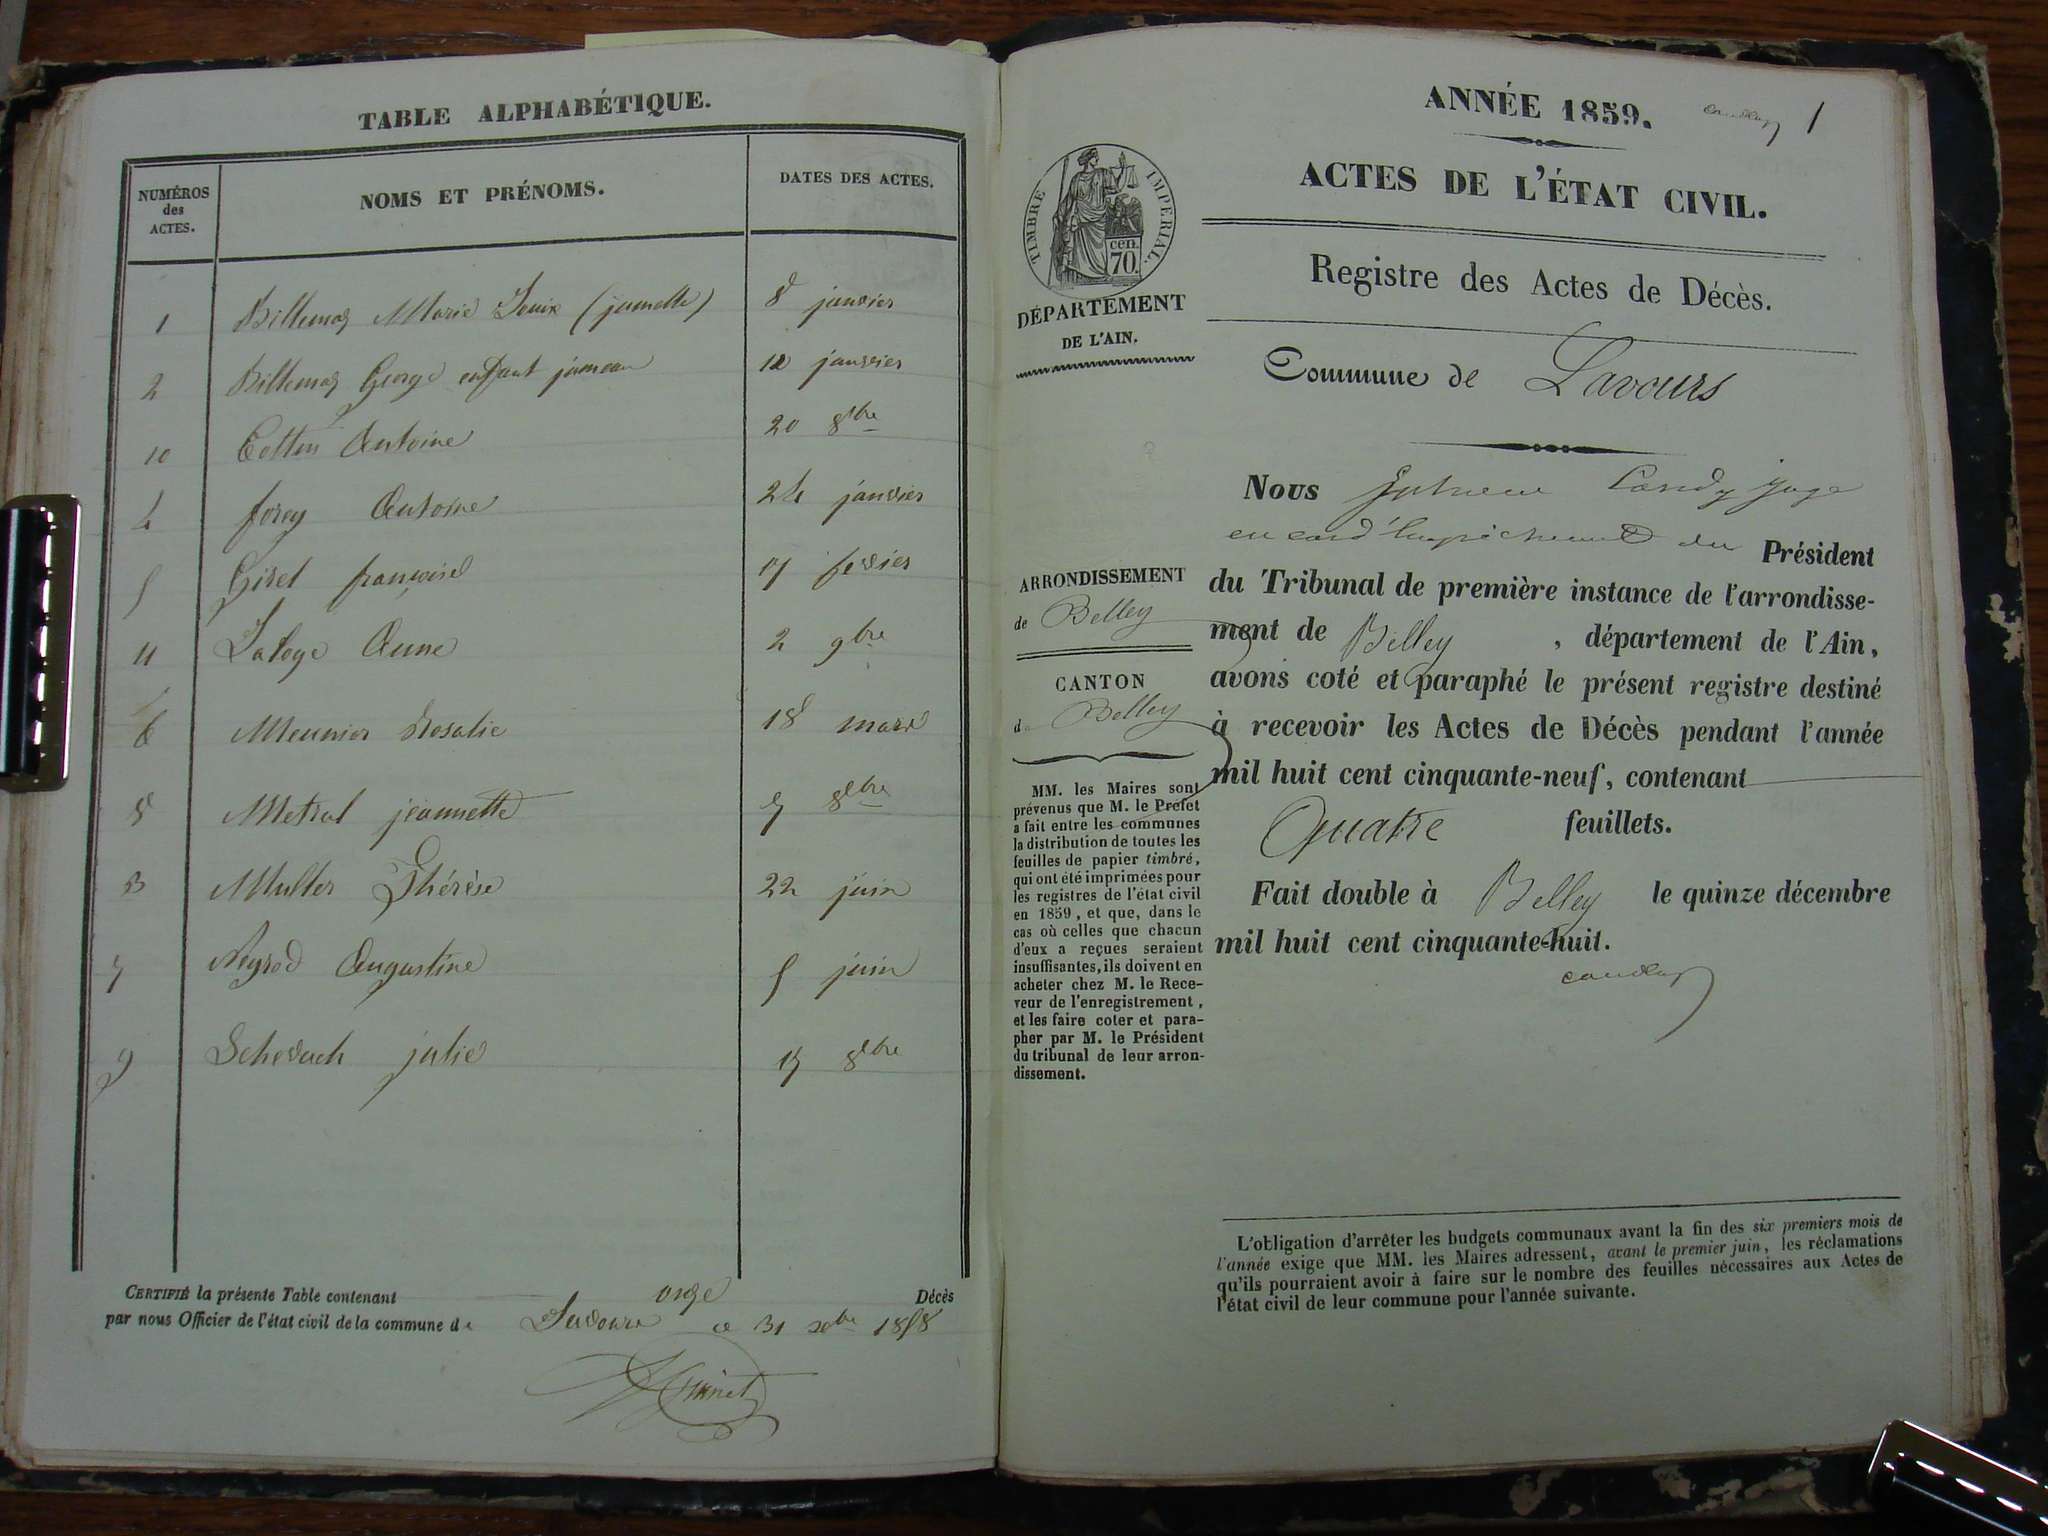 TABLE ALPHABÉTIQUE.
NUMÉROS des ACTES. NOMS ET PRÉNOMS. DATES DES ACTES.
1 Billemaz Marie Louise (jumelle) 8 janvier
2 Billemaz George enfant jumeau 12 janvier
10 Cottin Antoine 20 8bre
4 forey Antoine 24 janvier
5 Giret françoise 17 fevrier
11 Laloge Anne 2 9bre
6 Meunier Rosalie 18 mars
8 Metral jeannette 7 8bre
3 Multer Thérèse 22 juin
7 Neyrod Augustine 5 juin
9 julie 17 8bre
CERTIFIÉ la présente Table contenant onze Décès
par nous Officier de l'état civil de la commune de Lavours ce 31 xbre 1858
Guinet
ANNÉE 1859. 1
ACTES DE L'ÉTAT CIVIL.
TIMBRE IMPERIAL.
cen. 70.
Registre des Actes de Décès.
DÉPARTEMENT
DE L'AIN.
Commune de Lavours
Nous juge
en cas d'empêchement du Président
du Tribunal de première instance de l'arrondisse-
ment de Belley, département de l'Ain,
avons coté et paraphé le présent registre destiné
à recevoir les Actes de Décès pendant l'année
mil huit cent cinquante-neuf, contenant
Quatre feuillets.
Fait double à Belley le quinze décembre
mil huit cent cinquante-huit.
ARRONDISSEMENT
de Belley
CANTON
de Belley
MM. les Maires sont
prévenus que M. le Préfet
a fait entre les communes
la distribution de toutes les
feuilles de papier timbré,
qui ont été imprimées pour
les registres de l'état civil
en 1859, et que, dans le
cas où celles que chacun
d'eux a reçues seraient
insuffisantes, ils doivent en
acheter chez M. le Rece-
veur de l'enregistrement,
et les faire coter et para-
pher par M. le Président
du tribunal de leur arron-
dissement.
L'obligation d'arrêter les budgets communaux avant la fin des six premiers mois de
l'année exige que MM. les Maires adressent, avant le premier juin, les réclamations
qu'ils pourraient avoir à faire sur le nombre des feuilles nécessaires aux Actes de
l'état civil de leur commune pour l'année suivante.